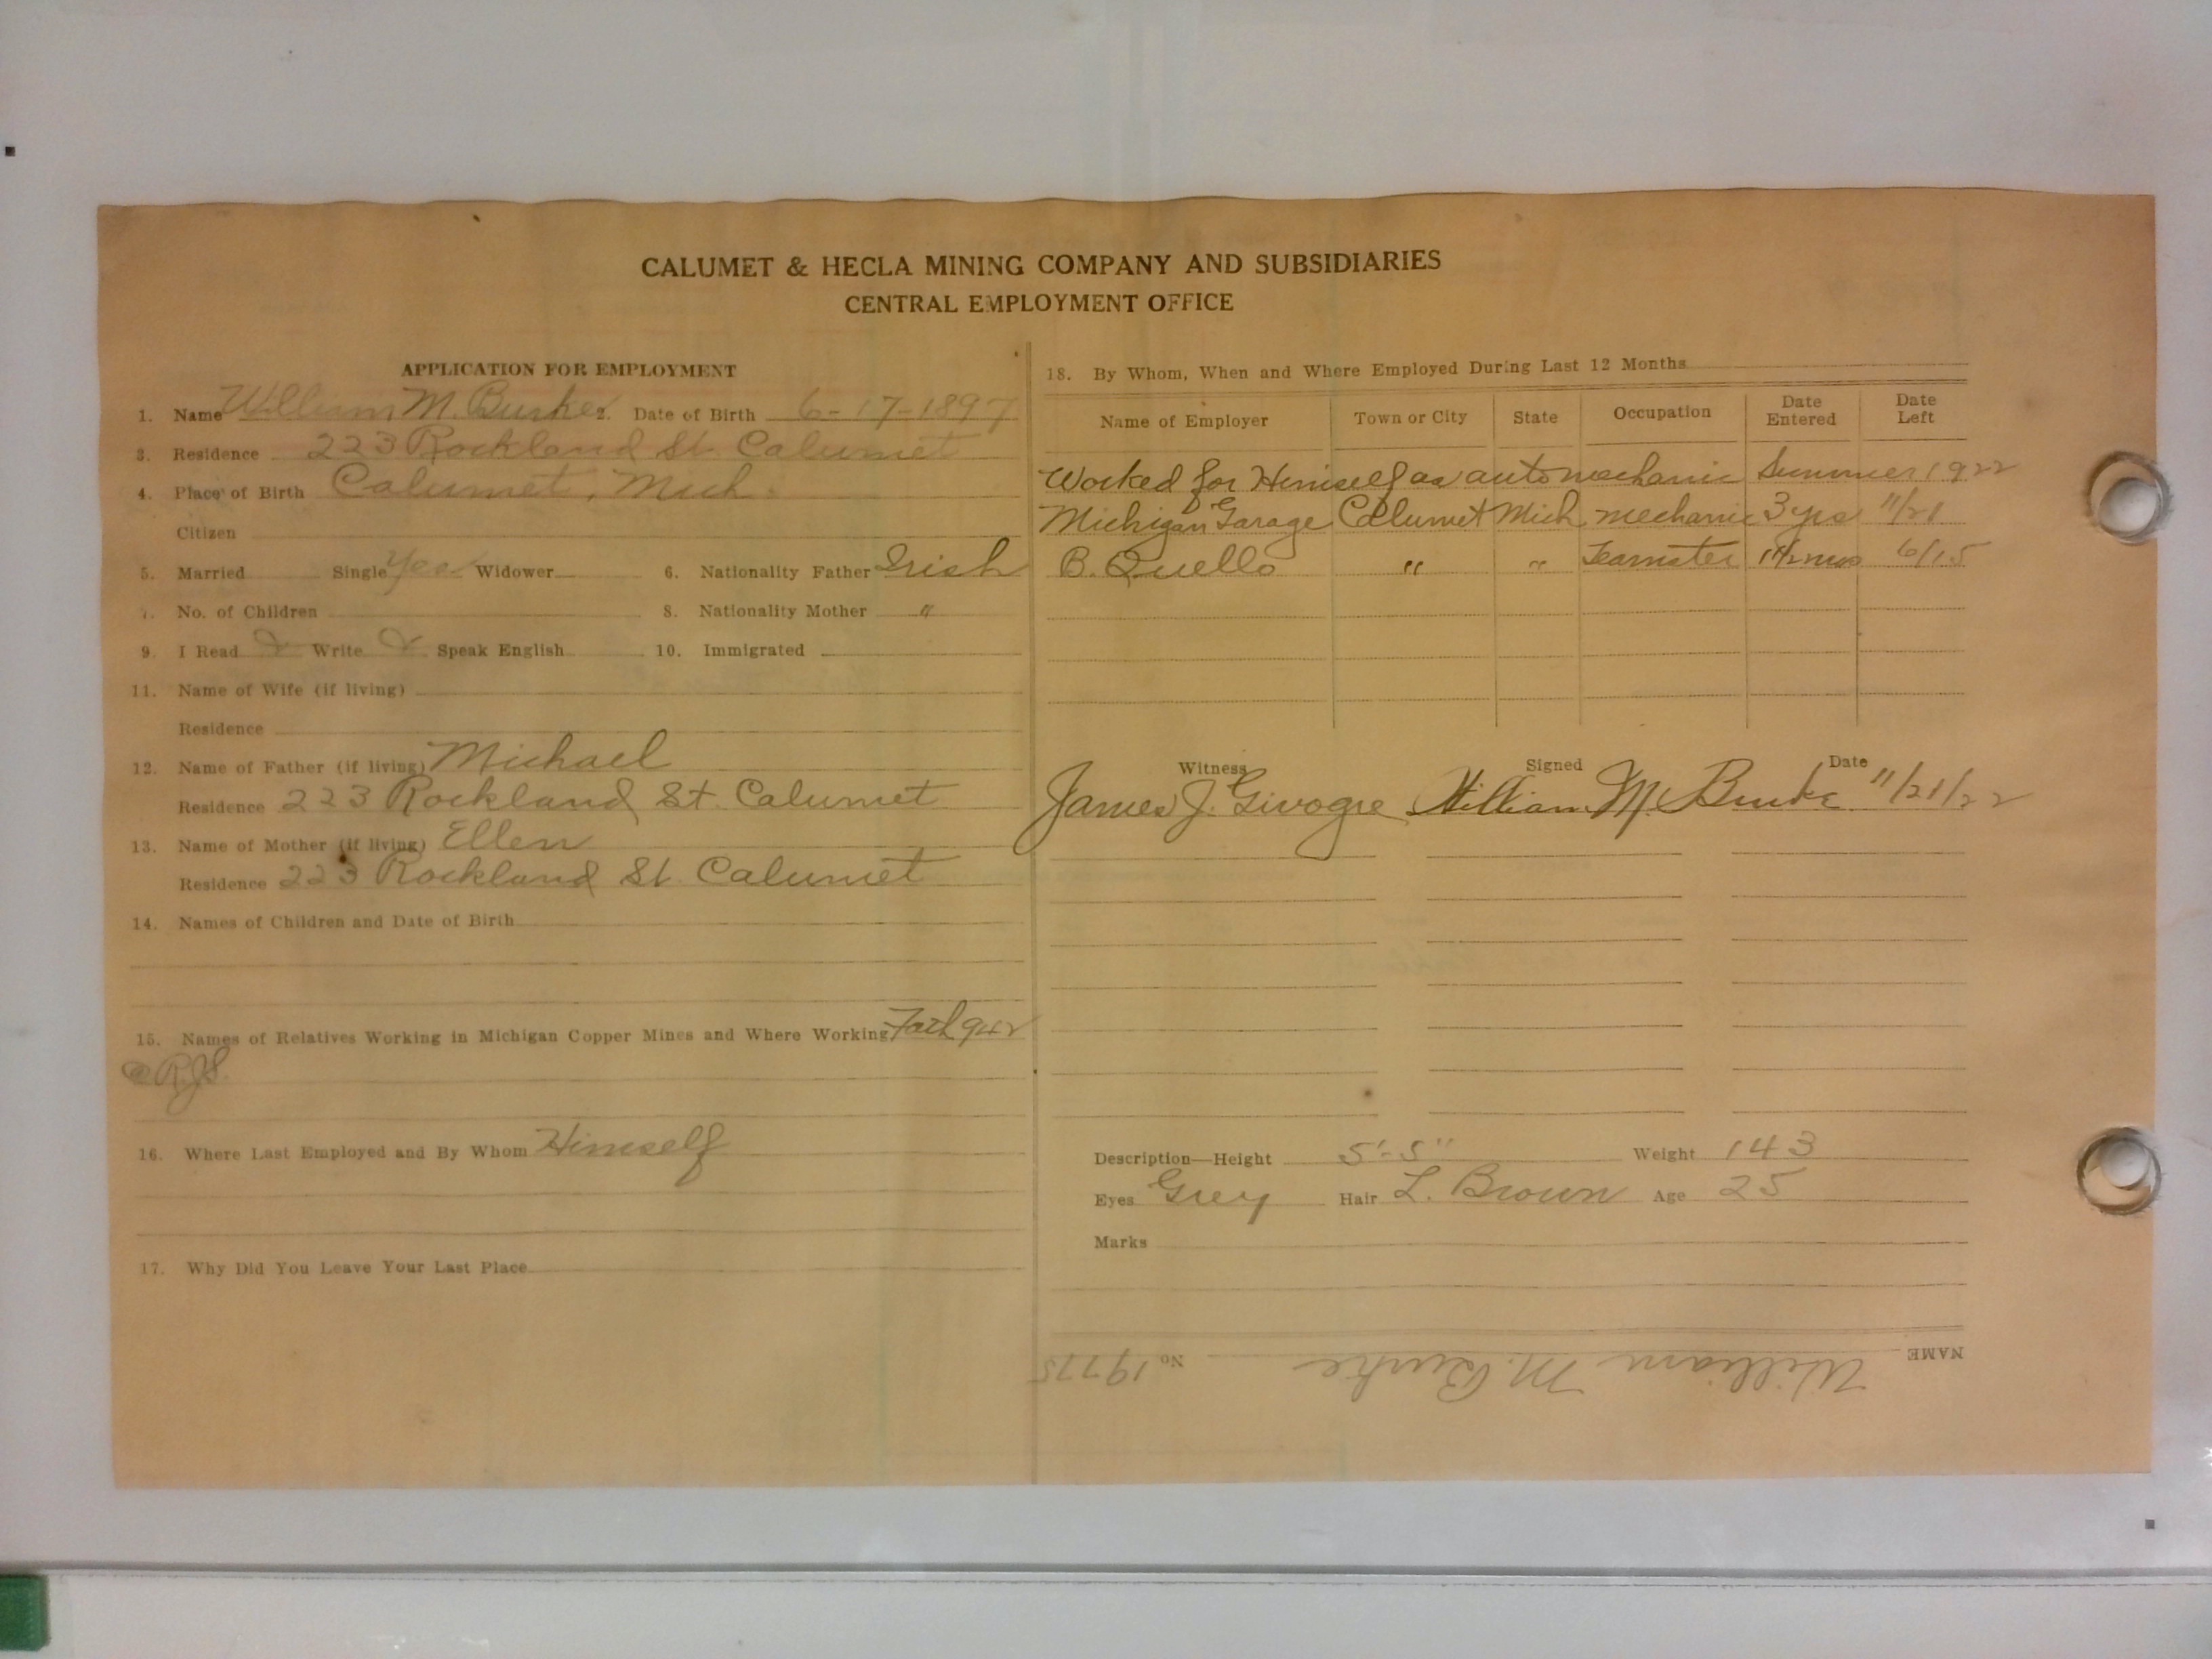 CALUMET & HECLA MINING COMPANY AND SUBSIDIARIES
CENTRAL EMPLOYMENT OFFICE
APPLICATION FOR EMPLOYMENT
1. Name William M. Burke 2. Date of Birth 6-17-1897
3. Residence 223 Rockland St. Calumet
4. Place of Birth Calumet, Mich.
Citizen
5. Married Single Yes Widower 6. Nationality Father Irish
7. No. of Children 8. Nationality Mother "
9. I Read Write Speak English 10. Immigrated
11. Name of Wife (if living)
Residence
12. Name of Father (if living) Michael
Residence 223 Rockland St. Calumet
13. Name of Mother (if living) Ellen
Residence 223 Rockland St. Calumet
14. Names of Children and Date of Birth
15. Names of Relatives Working in Michigan Copper Mines and Where Working
16. Where Last Employed and By Whom Himself
17. Why Did You Leave Your Last Place
18. By Whom, When and Where Employed During Last 12 Months
Name of Employer Town or City State Occupation Date Entered Date Left
Worked for Himself as auto mechanic Summer 1922
Michigan Garage Calumet Mich mechanic 3 yrs 11/21
B. Quello " " Teamster 1 1/2 mos 6/15
Witness Signed Date
James J. William M. Burke 11/21/22
Description—Height 5'-5" Weight 143
Eyes Grey Hair L. Brown Age 25
Marks
NAME William M. Burke No 19775